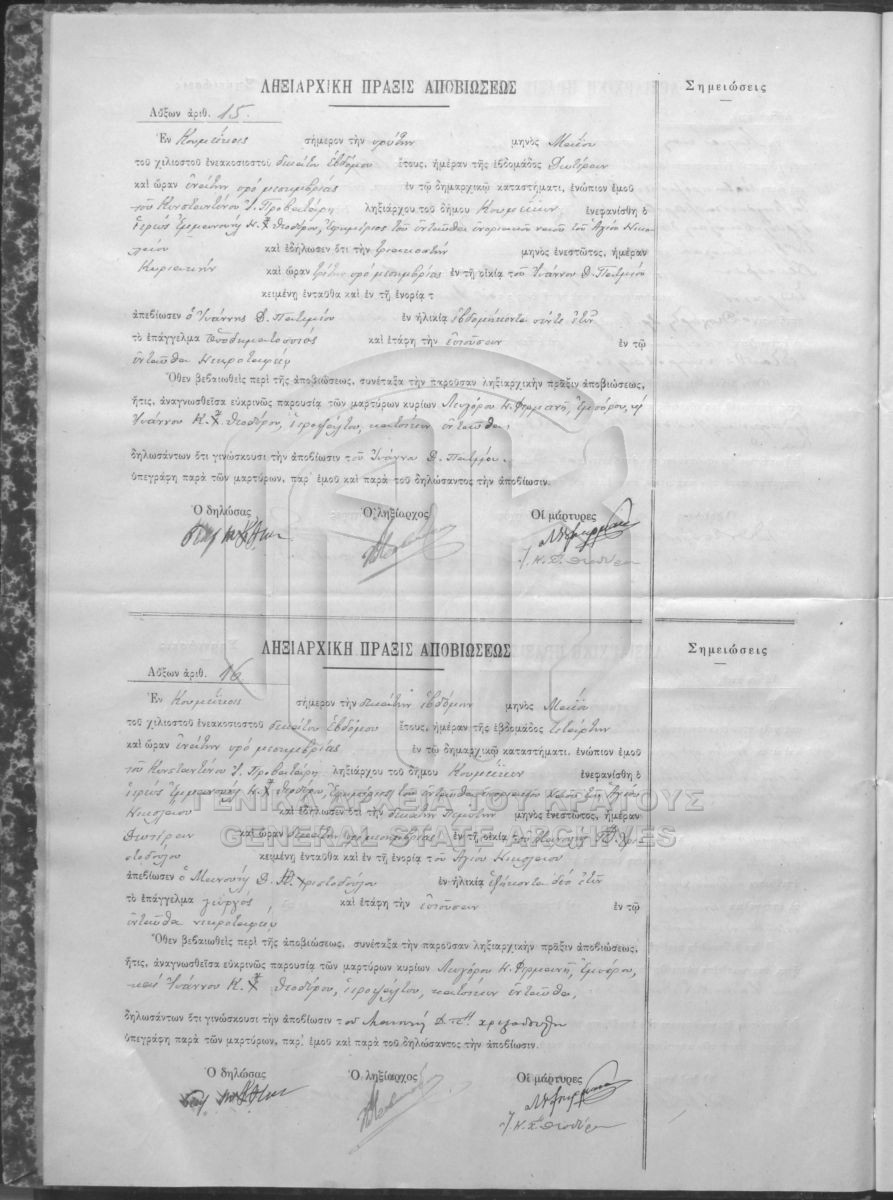 ΛΗΞΙΑΡΧΙΚΗ ΠΡΑΞΙΣ ΑΠΟΒΙΩΣΕΩΣ
Σημειώσεις
Αὔξων ἀριθ. 15.
Ἐν Κουμεΐκοις σήμερον τὴν πρώτην μηνὸς Μαΐου
τοῦ χιλιοστοῦ ἐνεακοσιοστοῦ δεκάτου ἑβδόμου ἔτους, ἡμέραν τῆς ἑβδομάδος Δευτέραν
καὶ ὥραν ἐνάτην πρὸ μεσημβρίας ἐν τῷ δημαρχικῷ καταστήματι, ἐνώπιον ἐμοῦ
τοῦ Κωνσταντίνου Ι. Προβατάρη ληξιάρχου τοῦ δήμου Κουμεΐκων ἐνεφανίσθη ὁ
ἱερεὺς Ἐμμανουὴλ Θεοδώρου, ἐφημέριος τοῦ ἐνταῦθα ἐνοριακοῦ ναοῦ τοῦ Ἁγίου Νικο
λάου καὶ ἐδήλωσεν ὅτι τὴν τριακοστὴν μηνὸς ἐνεστῶτος, ἡμέραν
Κυριακὴν καὶ ὥραν τρίτην πρὸ μεσημβρίας ἐν τῇ οἰκίᾳ τοῦ Ἰωάννου Δ. Πατμίου
κειμένῃ ἐνταῦθα καὶ ἐν τῇ ἐνορίᾳ τ
ἀπεβίωσεν ὁ Ἰωάννης Δ. Πατμίου ἐν ἡλικίᾳ ἑβδομήκοντα πέντε ἐτῶν
τὸ ἐπάγγελμα ὑποδηματοποιός καὶ ἐτάφη τὴν ἐπιοῦσαν ἐν τῷ
ἐνταῦθα Νεκροταφείῳ
Ὅθεν βεβαιωθεὶς περὶ τῆς ἀποβιώσεως, συνέταξα τὴν παροῦσαν ληξιαρχικὴν πρᾶξιν ἀποβιώσεως,
ἥτις, ἀναγνωσθεῖσα εὐκρινῶς παρουσίᾳ τῶν μαρτύρων κυρίων Ἐμπόρου, καὶ
Ἰωάννου Κ. Θεοδώρου, ἱεροψάλτου, κατοίκων ἐνταῦθα,
δηλωσάντων ὅτι γινώσκουσι τὴν ἀποβίωσιν τοῦ Ἰωάννου Δ. Πατμίου.
ὑπεγράφη παρὰ τῶν μαρτύρων, παρ' ἐμοῦ καὶ παρὰ τοῦ δηλώσαντος τὴν ἀποβίωσιν.
Ὁ δηλώσας Ὁ ληξίαρχος Οἱ μάρτυρες
ΛΗΞΙΑΡΧΙΚΗ ΠΡΑΞΙΣ ΑΠΟΒΙΩΣΕΩΣ
Σημειώσεις
Αὔξων ἀριθ. 16.
Ἐν Κουμεΐκοις σήμερον τὴν δεκάτην ἑβδόμην μηνὸς Μαΐου
τοῦ χιλιοστοῦ ἐνεακοσιοστοῦ δεκάτου ἑβδόμου ἔτους, ἡμέραν τῆς ἑβδομάδος τετάρτην
καὶ ὥραν ἐνάτην πρὸ μεσημβρίας ἐν τῷ δημαρχικῷ καταστήματι, ἐνώπιον ἐμοῦ
τοῦ Κωνσταντίνου Ι. Προβατάρη ληξιάρχου τοῦ δήμου Κουμεΐκων ἐνεφανίσθη ὁ
ἱερεὺς Ἐμμανουὴλ Θεοδώρου, ἐφημέριος τοῦ ἐνταῦθα ἐνοριακοῦ ναοῦ τοῦ Ἁγίου
Νικολάου καὶ ἐδήλωσεν ὅτι τὴν δεκάτην πέμπτην μηνὸς ἐνεστῶτος, ἡμέραν
Δευτέραν καὶ ὥραν δεκάτην πρὸ μεσημβρίας ἐν τῇ οἰκίᾳ τοῦ Μανουὴλ Χρι
στοδούλου κειμένῃ ἐνταῦθα καὶ ἐν τῇ ἐνορίᾳ τοῦ Ἁγίου Νικολάου
ἀπεβίωσεν ὁ Μανουὴλ Δ. Χριστοδούλου ἐν ἡλικίᾳ ἑξήκοντα δύο ἐτῶν
τὸ ἐπάγγελμα γεωργός, καὶ ἐτάφη τὴν ἐπιοῦσαν ἐν τῷ
ἐνταῦθα νεκροταφείῳ
Ὅθεν βεβαιωθεὶς περὶ τῆς ἀποβιώσεως, συνέταξα τὴν παροῦσαν ληξιαρχικὴν πρᾶξιν ἀποβιώσεως,
ἥτις, ἀναγνωσθεῖσα εὐκρινῶς παρουσίᾳ τῶν μαρτύρων κυρίων Ἐμπόρου,
καὶ Ἰωάννου Κ. Θεοδώρου, ἱεροψάλτου, κατοίκων ἐνταῦθα,
δηλωσάντων ὅτι γινώσκουσι τὴν ἀποβίωσιν τοῦ Μανουὴλ
ὑπεγράφη παρὰ τῶν μαρτύρων, παρ' ἐμοῦ καὶ παρὰ τοῦ δηλώσαντος τὴν ἀποβίωσιν.
Ὁ δηλώσας Ὁ ληξίαρχος Οἱ μάρτυρες
ΓΕΝΙΚΑ ΑΡΧΕΙΑ ΤΟΥ ΚΡΑΤΟΥΣ
GENERAL STATE ARCHIVES